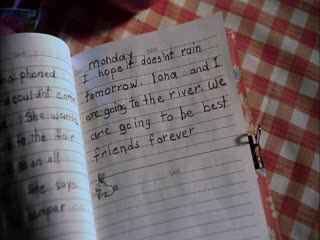 na phoned
e couldnt com
She wants
d to the fair
She says
DATE
monday
I hope it doesnt rain
tomorrow. Iona and I
are going to the river. We
are going to be best
friends forever
DATE